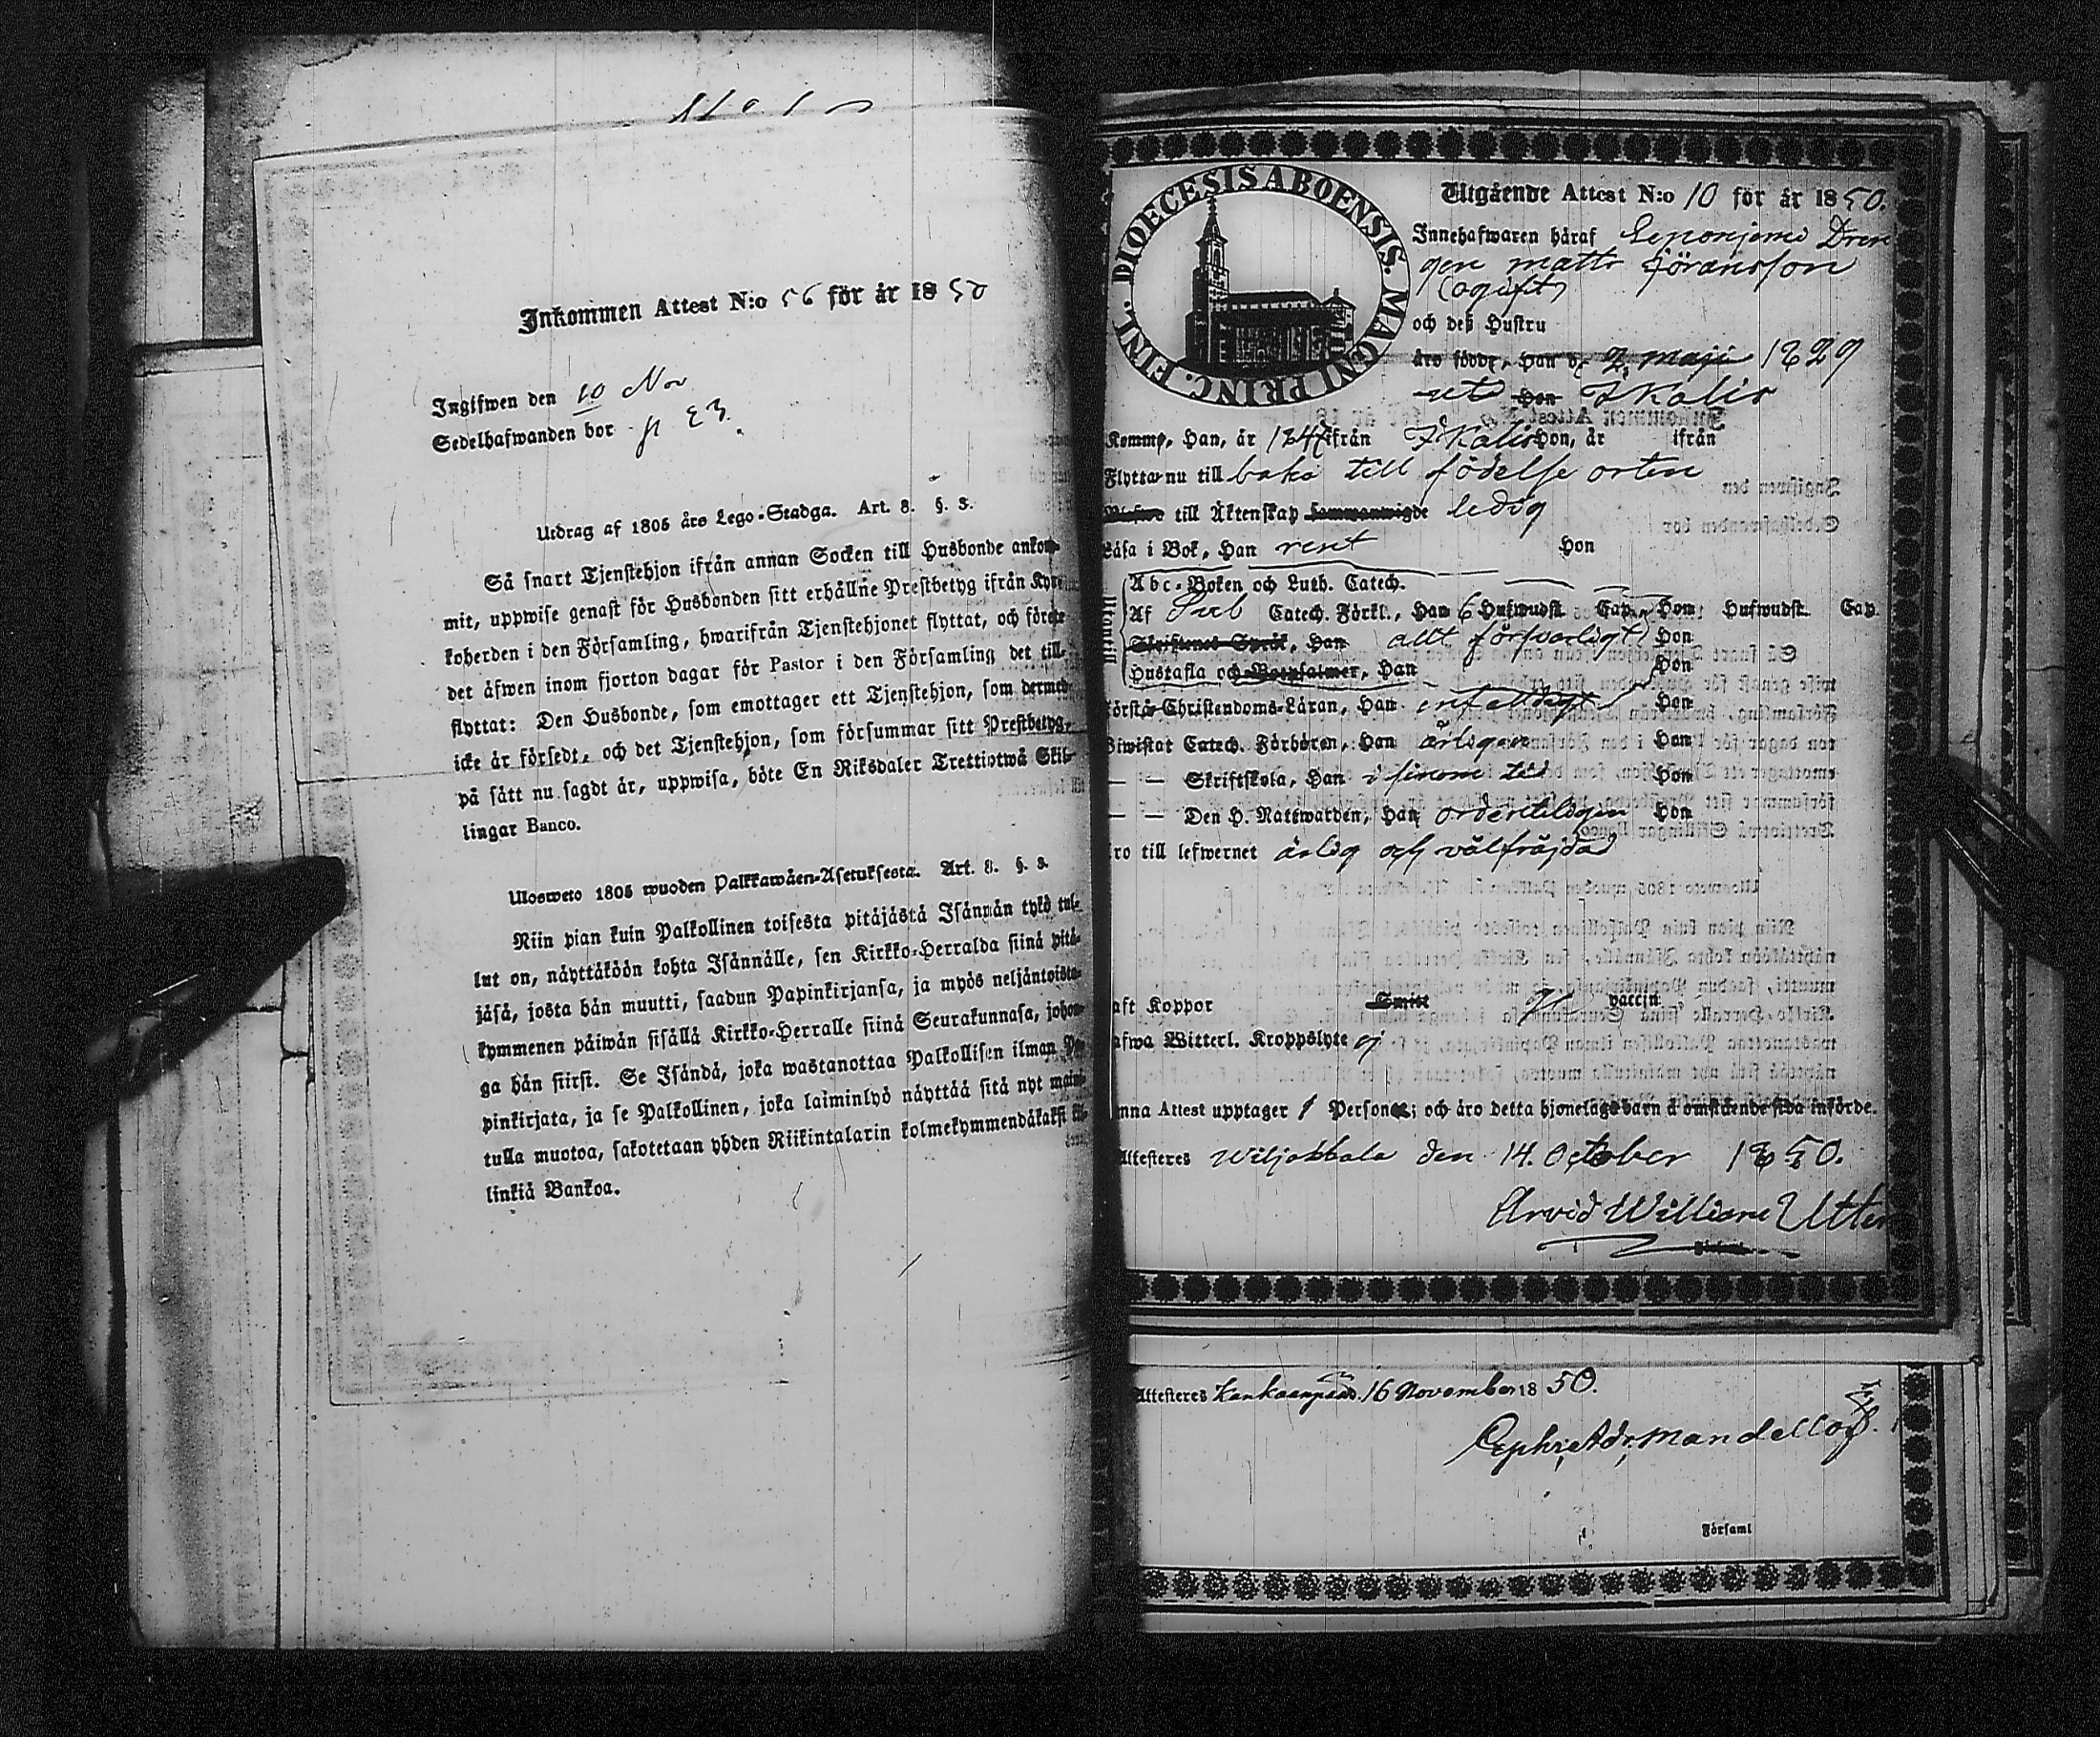 Inkommen Attest N:o 56 för år 1850
Ingifwen den 10 Nov
Sedelhafwanden bor p 23.
Utdrag af 1805 års Lego-Stadga. Art. 8. §. 3.
Så snart Tjenstehjon ifrån annan Socken till Husbonde ankom-
mit, uppwise genast för Husbonden sitt erhållne Prestbetyg ifrån Kyr-
koherden i den Församling, hwarifrån Tjenstehjonet flyttat, och förete
det äfwen inom fjorton dagar för Pastor i den Församling det till-
flyttat: Den Husbonde, som emottager ett Tjenstehjon, som dermed
icke är försedt, och det Tjenstehjon, som försummar sitt Prestbetyg,
på sätt nu sagdt är, uppwisa, böte En Riksdaler Trettiotwå Skil-
lingar Banco.
Ulosweto 1805 wuoden Palkkawäen-Asetuksesta. Art. 8. §. 3.
Niin pian kuin Palkollinen toisesta pitäjästä Isännän tykö tul-
lut on, näyttäköön kohta Isännälle, sen Kirkko-Herralda siinä pitä-
jäsä, josta hän muutti, saadun Papinkirjansa, ja myös neljäntoista-
kymmenen päiwän sisällä Kirkko-Herralle siinä Seurakunnasa, johon-
ga hän siirsi. Se Isändä, joka wastanottaa Palkollisen ilman Pa-
pinkirjata, ja se Palkollinen, joka laiminlyö näyttää sitä nyt maini-
tulla muotoa, sakotetaan yhden Riikintalarin kolmekymmendäkaksi kil-
linkiä Bankoa.
DIOECESIS ABOENSIS. MAGNI PRINC. FINL.
Utgående Attest N:o 10 för år 1850.
Innehafwaren häraf Dren
gen Matts Jöransson
(ogift)
och deß Hustru
äro födde, Han d. 2 maji 1829
uti Hon Ikalis
Komme, Han, år ifrån Ikalis Hon, år ifrån
Flytta nu till baka till födelse orten
till Äktenskap sammanwigde ledig
Läsa i Bok, Han rent Hon
Utantill
Abc-Boken och Luth. Catech.
Af Catech. Förkl., Han 6 Hufwudst. Cap., Hon Hufwudst. Cap.
Skriftenes Språk, Han allt försvarligt Hon
Hustafla och Botpsalmer, Han Hon
Förstå Christendoms-Läran, Han enfaldigt Hon
Biwistat Catech. Förhören, Han årligen Hon
— — Skriftskola, Han i sinom tid Hon
— — Den H. Nattwarden, Han ordenteligen Hon
äro till lefwernet ärlig och välfräjdad
haft Koppor Smitt vaccin
Hafwa Witterl. Kroppslyte ej
Denna Attest upptager 1 Person; och äro detta hjonelags barn å omstående sida införde.
Attesteras Wiljakkala den 14. October 1850.
Arvid William Utter
Attesteres Kankaanpää. 16 November 1850.
Mandellöf.
Församl